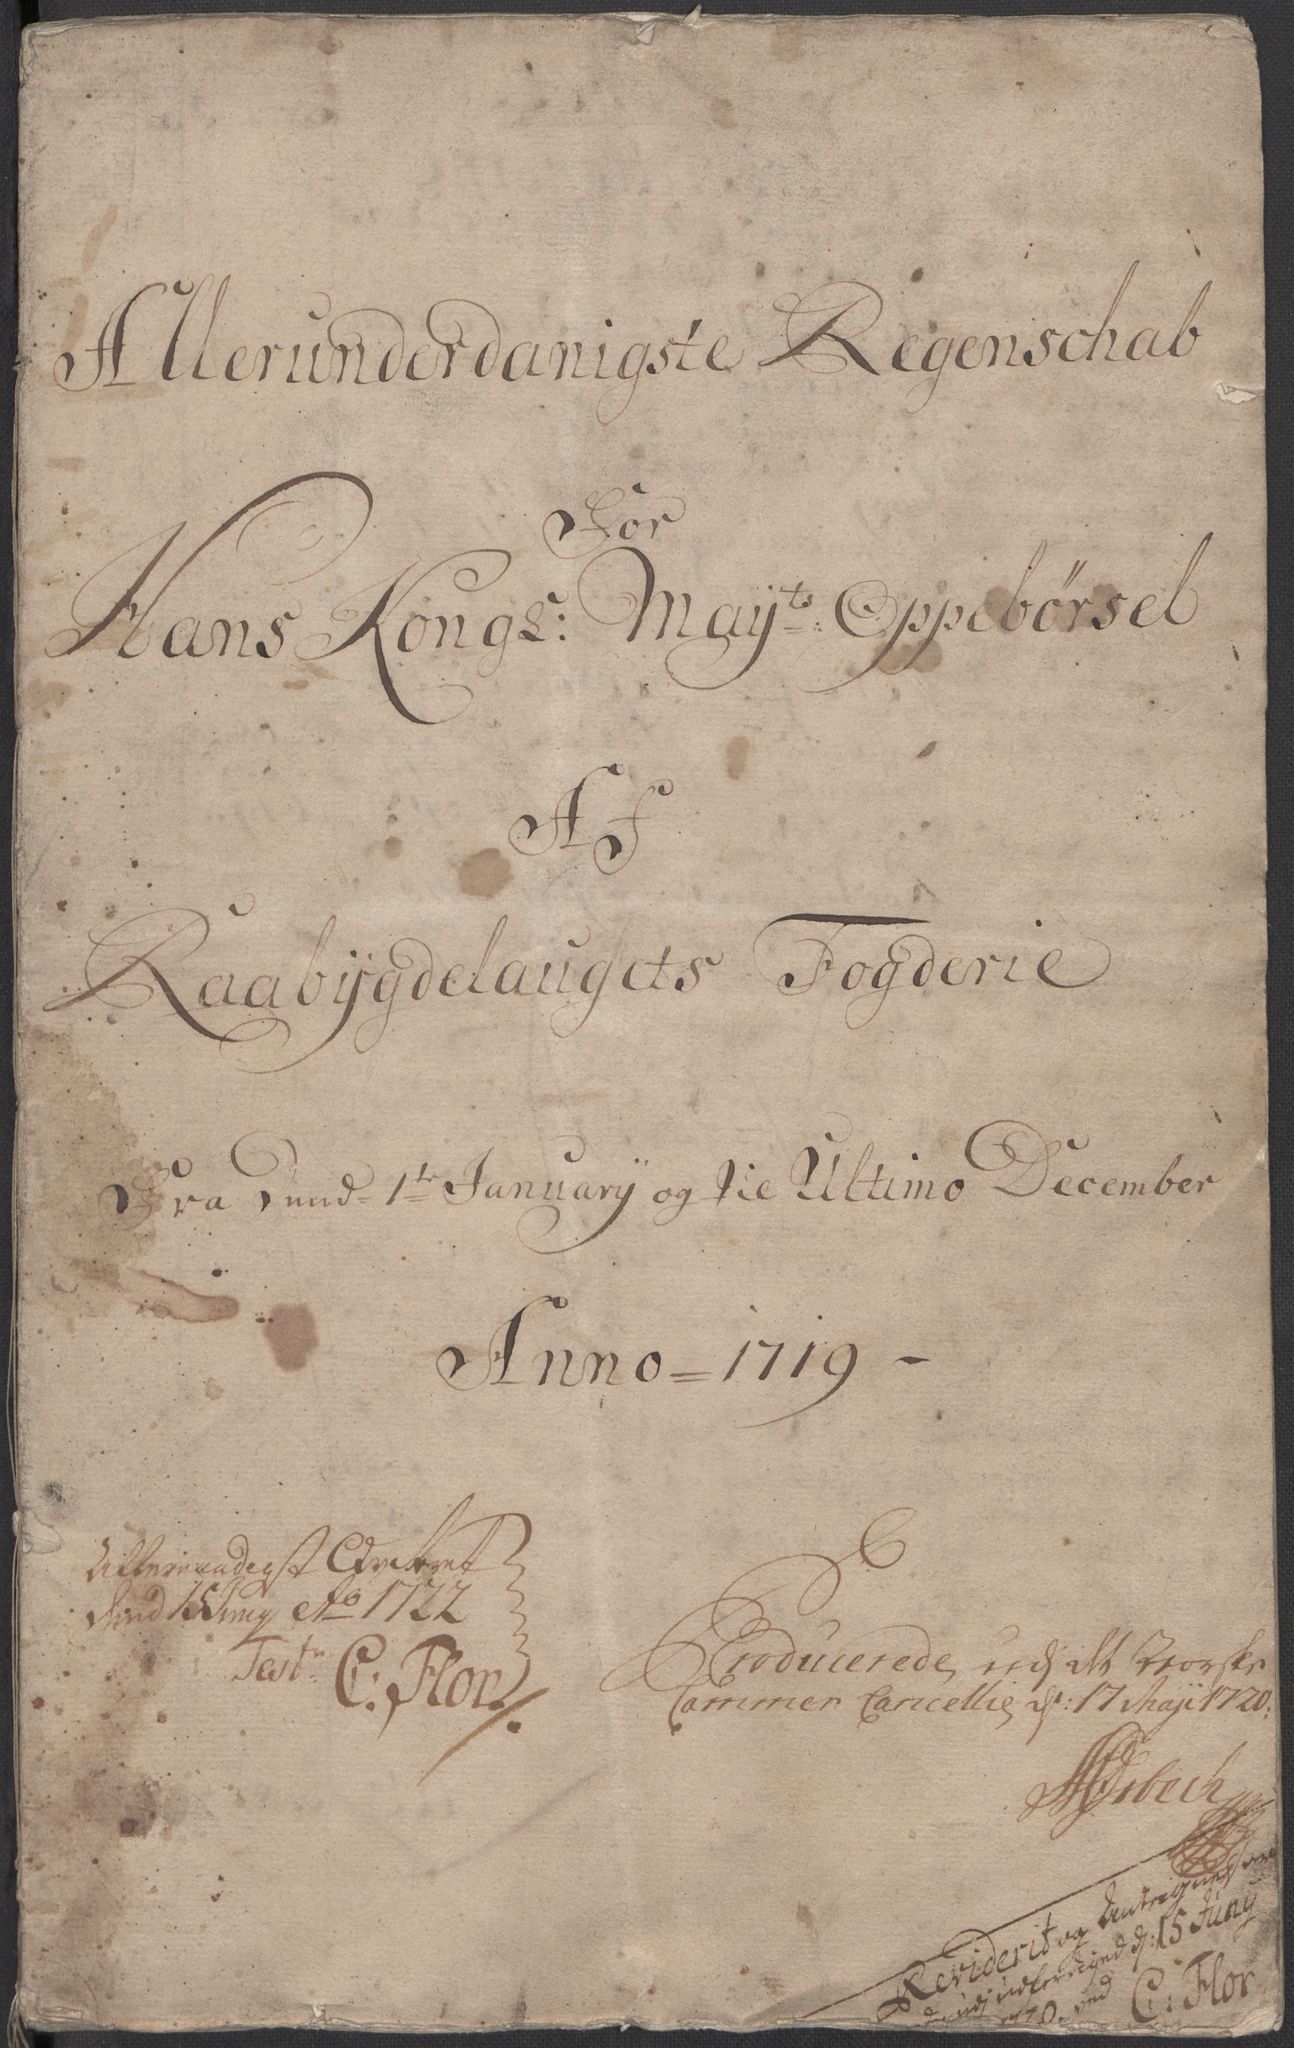 Allerunderdanigste Regenschab
For
Hans Kongl: Mayts: Oppebørsel
Af
Raabÿgdelaugets Fogderie
Fra Dend 1te Januarÿ og til Ultimo December
Anno = 1719 -
Allernaadegst
dend 15 Juny Ao 1722
Test C: Flor
Producerede udj det Norske
Cammer Cancellie, d: 17 Maji 1720:
Reviderit og
d: 15 Juny
ved C: Flor